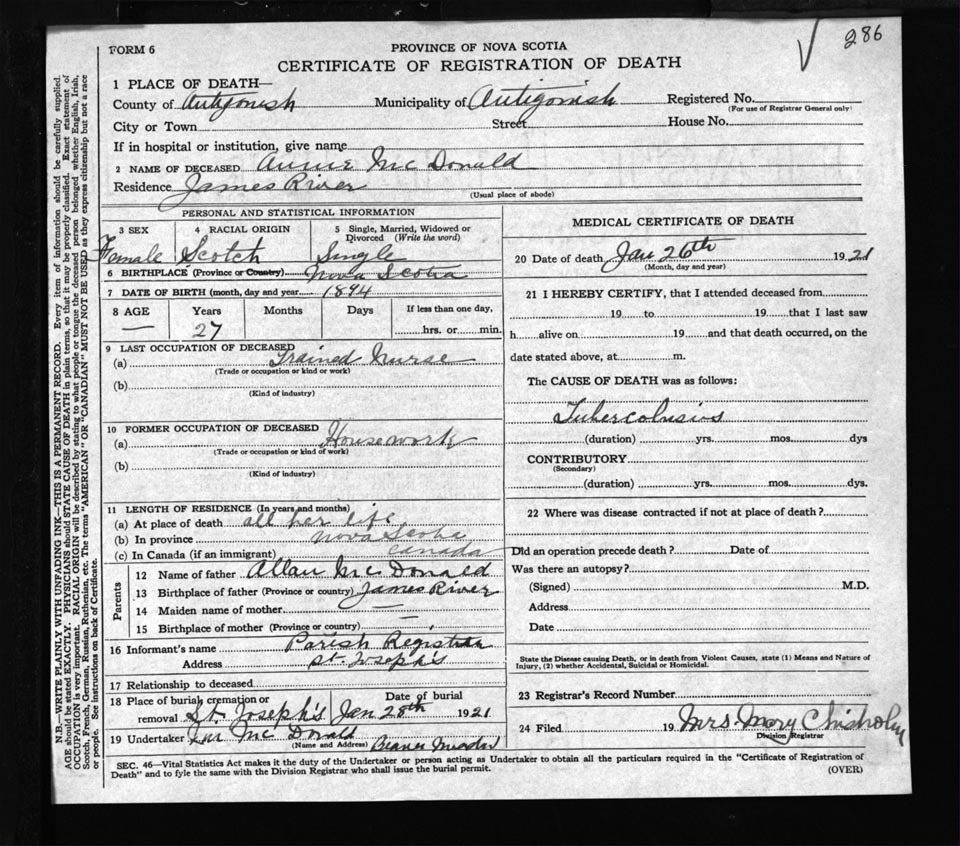 286
FORM 6
PROVINCE OF NOVA SCOTIA
CERTIFICATE OF REGISTRATION OF DEATH
1 PLACE OF DEATH—
County of Antigonish Municipality of Antigonish Registered No.
(For use of Registrar General only)
City or Town Street House No.
If in hospital or institution, give name
2 NAME OF DECEASED Annie McDonald
Residence James River
(Usual place of abode)
PERSONAL AND STATISTICAL INFORMATION
3 SEX 4 RACIAL ORIGIN 5 Single, Married, Widowed or Divorced (Write the word)
Female Scotch Single
6 BIRTHPLACE (Province or Country) Nova Scotia
7 DATE OF BIRTH (month, day and year) 1894
8 AGE Years Months Days If less than one day,
— 27 hrs. or min.
9 LAST OCCUPATION OF DECEASED
(a) Trained Nurse
(Trade or occupation or kind or work)
(b)
(Kind of industry)
10 FORMER OCCUPATION OF DECEASED
(a) Housework
(Trade or occupation or kind of work)
(b)
(Kind of industry)
11 LENGTH OF RESIDENCE (In years and months)
(a) At place of death all her life
(b) In province Nova Scotia
(c) In Canada (if an immigrant) Canada
Parents
12 Name of father Allan McDonald
13 Birthplace of father (Province or country) James River
14 Maiden name of mother —
15 Birthplace of mother (Province or country)
16 Informant's name Parish Register
Address St. Joseph's
17 Relationship to deceased
18 Place of burial, cremation or removal St. Joseph's Date of burial Jan 28th 1921
19 Undertaker McDonald
(Name and Address) Beaver Meadow
MEDICAL CERTIFICATE OF DEATH
20 Date of death Jan 26th 1921
(Month, day and year)
21 I HEREBY CERTIFY, that I attended deceased from
19 to 19 that I last saw
h alive on 19 and that death occurred, on the
date stated above, at m.
The CAUSE OF DEATH was as follows:
Tubercolusios
(duration) yrs. mos. dys
CONTRIBUTORY
(Secondary)
(duration) yrs. mos. dys.
22 Where was disease contracted if not at place of death?
Did an operation precede death? Date of
Was there an autopsy?
(Signed) M.D.
Address
Date
State the Disease causing Death, or in death from Violent Causes, state (1) Means and Nature of
Injury, (2) whether Accidental, Suicidal or Homicidal.
23 Registrar's Record Number
24 Filed 19 Mrs. Mary Chisholm
Division Registrar
SEC. 46—Vital Statistics Act makes it the duty of the Undertaker or person acting as Undertaker to obtain all the particulars required in the "Certificate of Registration of
Death" and to fyle the same with the Division Registrar who shall issue the burial permit. (OVER)
N.B.—WRITE PLAINLY WITH UNFADING INK—THIS IS A PERMANENT RECORD. Every item of information should be carefully supplied.
AGE should be stated EXACTLY. PHYSICIANS should STATE CAUSE OF DEATH in plain terms, so that it may be properly classified. Exact statement of
OCCUPATION is very important. RACIAL ORIGIN will be described by stating to what people or tongue the deceased person belonged, whether English, Irish,
Scotch, French, German, Russian, Ruthenian, etc. The terms "AMERICAN" OR "CANADIAN" MUST NOT BE USED as they express citizenship but not a race
or people. See instructions on back of Certificate.